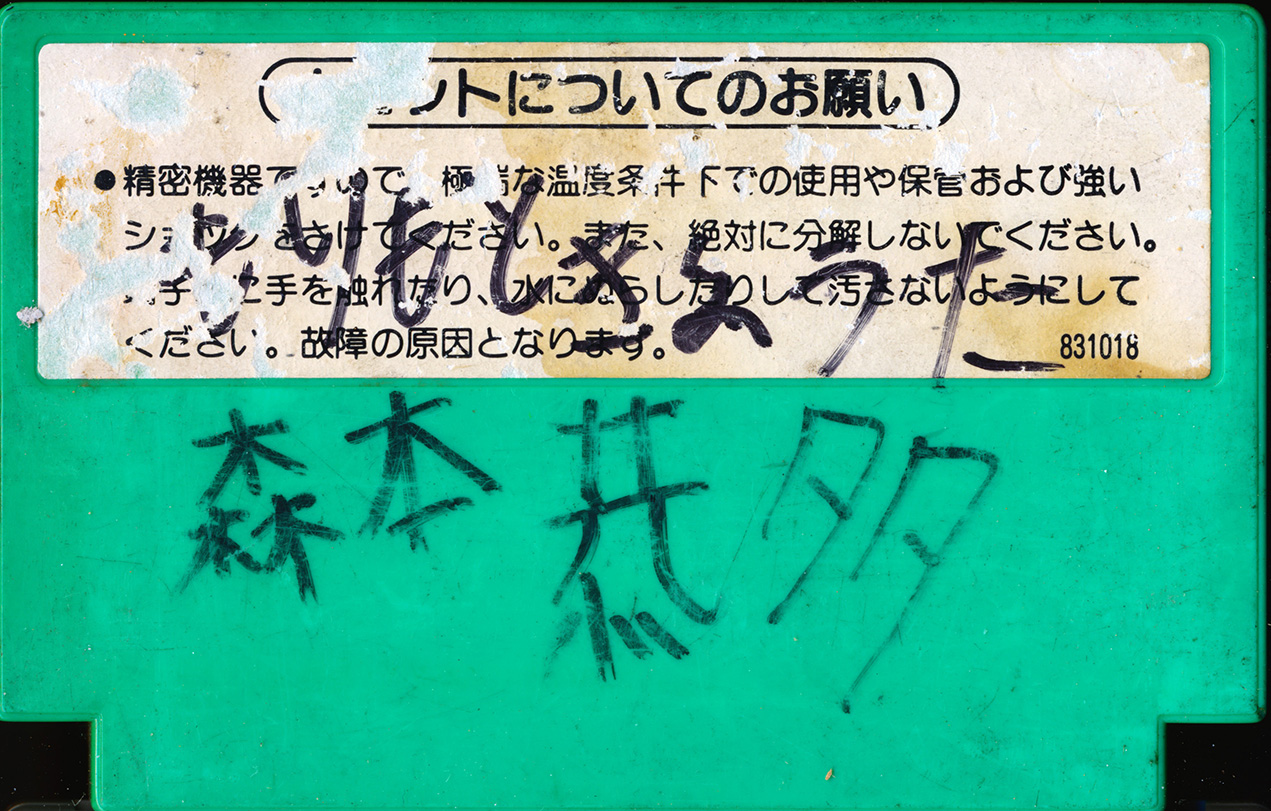 ットについてのお願い
●精密機器ですので、極端な温度条件下での使用や保管および強い
ショックをさけてください。また、絶対に分解しないでください。
子に手を触れたり、水にぬらしたりして汚さないようにして
ください。故障の原因となります。 831018
もりもときょうた
森本恭多